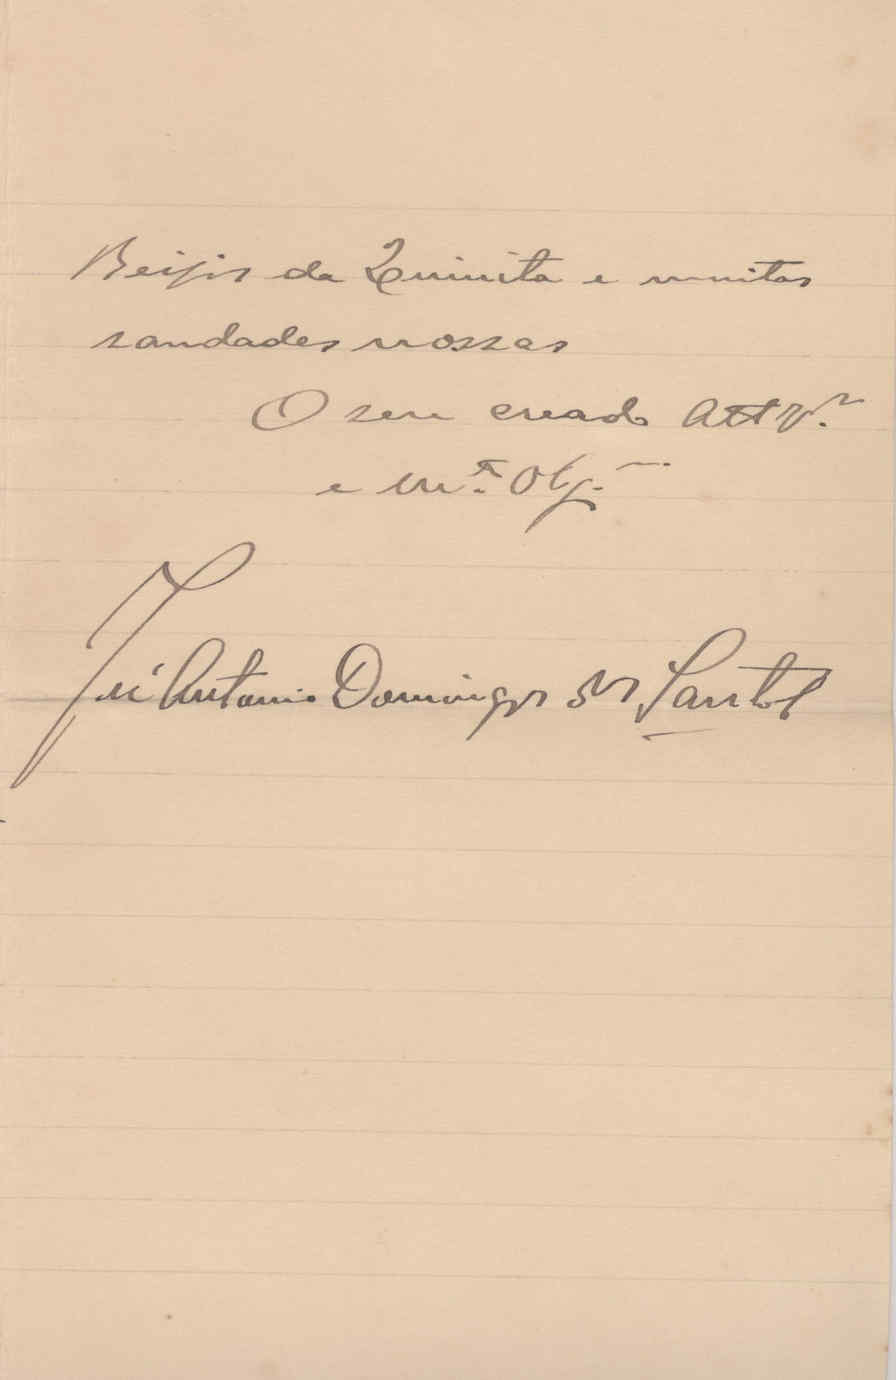 Beijos da Quinita e muitas
saudades nossas
O seu creado Attº. Vᵒʳ
e mᵗᵒ. Obgº.
José Antonio Domingos dos Santos